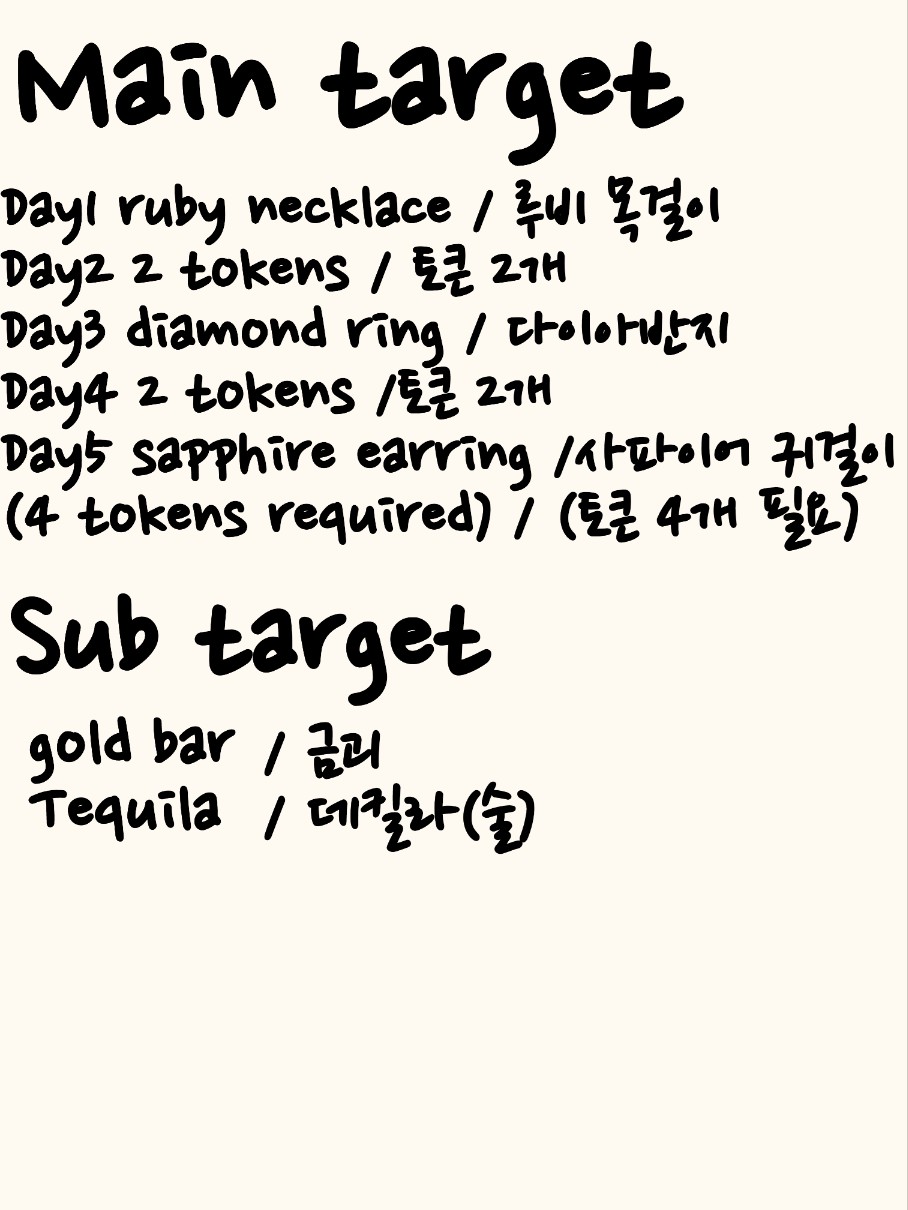 Main target
Day1 ruby necklace / 루비 목걸이
Day2 2 tokens / 토큰 2개
Day3 diamond ring / 다이아반지
Day4 2 tokens /토큰 2개
Day5 sapphire earring /사파이어 귀걸이
(4 tokens required) / (토큰 4개 필요)
Sub target
gold bar / 금괴
Tequila / 데킬라(술)